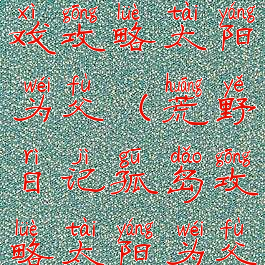 xì gōng lüè tài yáng
戏攻略太阳
wéi fù huāng yě
为父（荒野
rì jì gū dǎo gōng
日记孤岛攻
lüè tài yáng wéi fù
略太阳为父